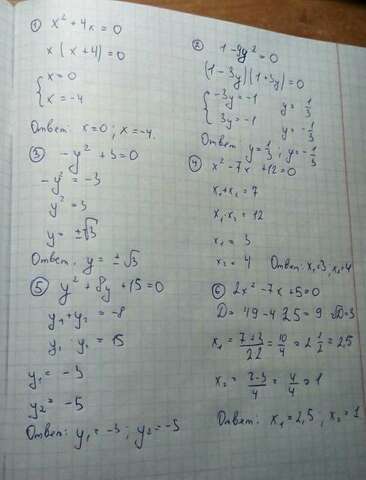 ① x² + 4x = 0
x(x+4) = 0
{ x = 0
{ x = -4
Ответ: x=0; x=-4.
② 1-9y² = 0
(1-3y)(1+3y)=0
{ -3y = -1 y = 1/3
{ 3y = -1 y = -1/3
Ответ y = 1/3; y = -1/3
③ -y² + 3 = 0
-y² = -3
y² = 3
y = ±√3
Ответ. y = ±√3
④ x² - 7x + 12 = 0
x₁+x₂ = 7
x₁·x₂ = 12
x₁ = 3
x₂ = 4 Ответ: x₁=3, x₂=4
⑤ y² + 8y + 15 = 0
y₁+y₂ = -8
y₁·y₂ = 15
y₁ = -3
y₂ = -5
Ответ: y₁ = -3; y₂ = -5
⑥ 2x² - 7x + 5 = 0
D = 49 - 4·2·5 = 9 √D=3
x₁ = (7+3)/(2·2) = 10/4 = 2 1/2 = 2,5
x₂ = (7-3)/4 = 4/4 = 1
Ответ: x₁ = 2,5; x₂ = 1